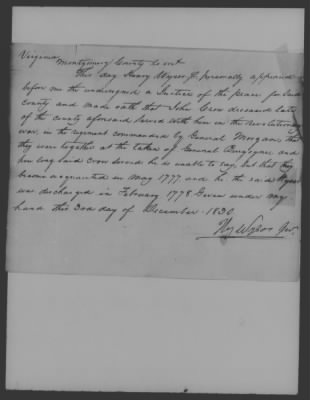 Virginia Montgomery County to wit
This day Henry Wysor Jr. personally appeared
before me the undersigned a Justice of the peace for said
county and made oath that John Crow deceased late
of the county aforesaid served with him in the revolutionary
war, in the regiment commanded by General Morgan, that
they were together at the taken of General Burgoyne and
how long said Crow served he is unable to say, but that they
became acquainted in may 1777 and he the said Wysor
was discharged in February 1778 Given under my
hand this day of December 1830
Hy Wysor Jr.